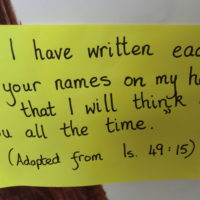 I have written
your names on my
that I will think
all the time.
(Adapted from Is. 49:15)